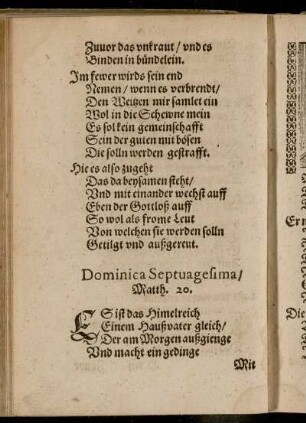 Zuuor das vnkraut / vnd es
Binden in bündelein.
Im fewer wirds sein end
Nemen / wenn es verbrendt /
Den Weitzen mir samlet ein
Wol in die Schewne mein
Es sol kein gemeinschafft
Sein der guten mit bösen
Die solln werden gestrafft.
Hie es also zugeht
Das da beysamen steht /
Vnd mit einander wechst auff
Eben der Gottloß auff
So wol als frome Leut
Von welchen sie werden solln
Getilgt vnd außgereut.
Dominica Septuagesima /
Matth. 20.
ES ist das Himelreich
Einem Haußvater gleich /
Der am Morgen außgienge
Vnd macht ein gedinge
Mit
Die